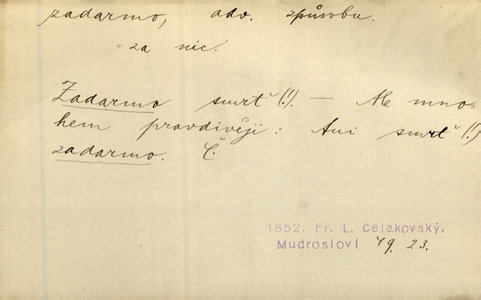 zadarmo, adv. způsobu.
= za nic.
Zadarmo smrť (!). — Ale mno-
hem pravdivěji: Ani smrť (!)
zadarmo. Č.
1852. Fr. L. Čelakovský,
Mudrosloví 49. 23.